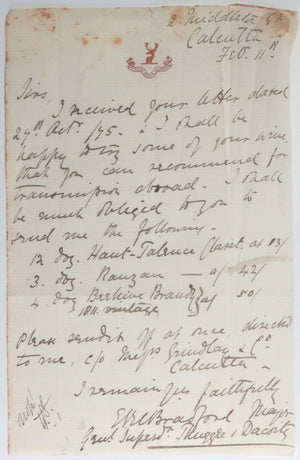 2 Middleton St
Calcutta
Feb. 11th
Sirs,
I received your letter dated
29th Oct. /95. & I shall be
happy to try some of your wine
that you can recommend for
transmission abroad. I shall
be much obliged to you to
send me the following.
12 doz. Haut-Talence Claret at 13/
3. doz. Rauzan — at 42/
4 doz Beehive Brandy at 50/
1811 vintage
Please send it off at once, directed
to me, c/o Messrs Grindlay & Co
Calcutta —
I remain yrs faithfully
ERC Bradford Major
Genl Superdt Thuggee & Dacoity